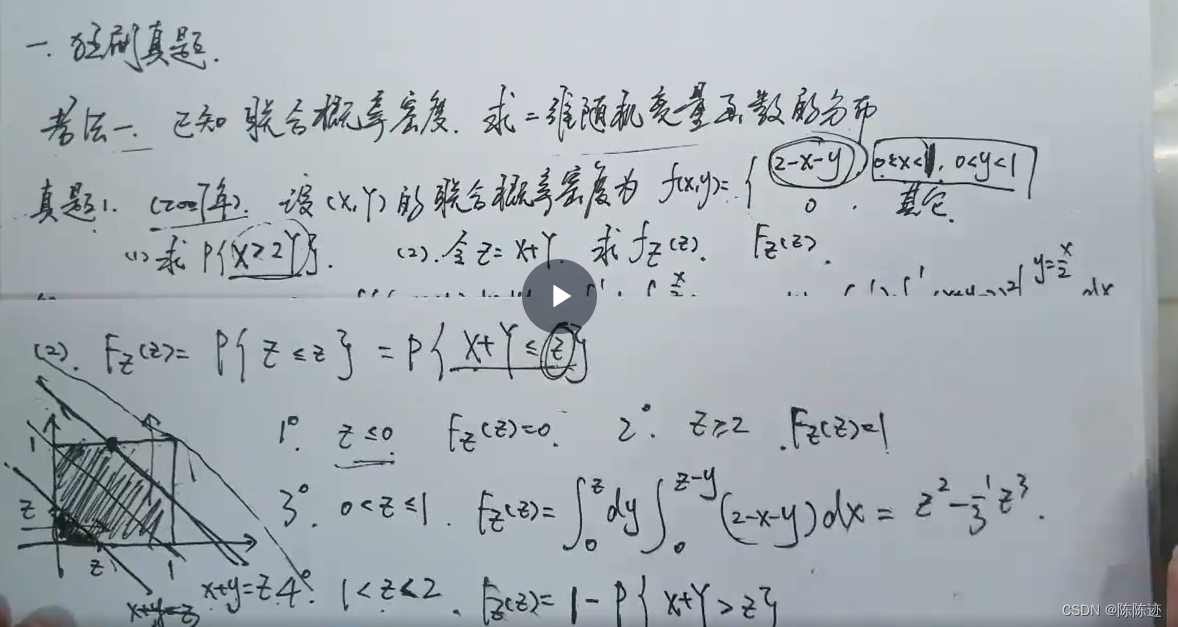 一. 狂刷真题.
考法一. 已知联合概率密度. 求二维随机变量函数的分布
真题1. (2007年). 设(X,Y)的联合概率密度为 f(x,y)={ 2-x-y, 0<x<1, 0<y<1
0, 其它.
(1) 求P{X>2Y}. (2). 令Z=X+Y. 求f_Z(z). F_Z(z).
y=x/2 dx
(2). F_Z(z)= P{Z≤z} = P{X+Y≤z}
1°. z≤0 F_Z(z)=0. 2°. z≥2 . F_Z(z)=1
3°. 0<z≤1. F_Z(z)= ∫₀^z dy ∫₀^(z-y) (2-x-y)dx = z²-1/3 z³.
4°. 1<z<2. F_Z(z)= 1-P{X+Y>z}
1
1
z
z
1
x+y=z
x+y=z
CSDN @陈陈迹